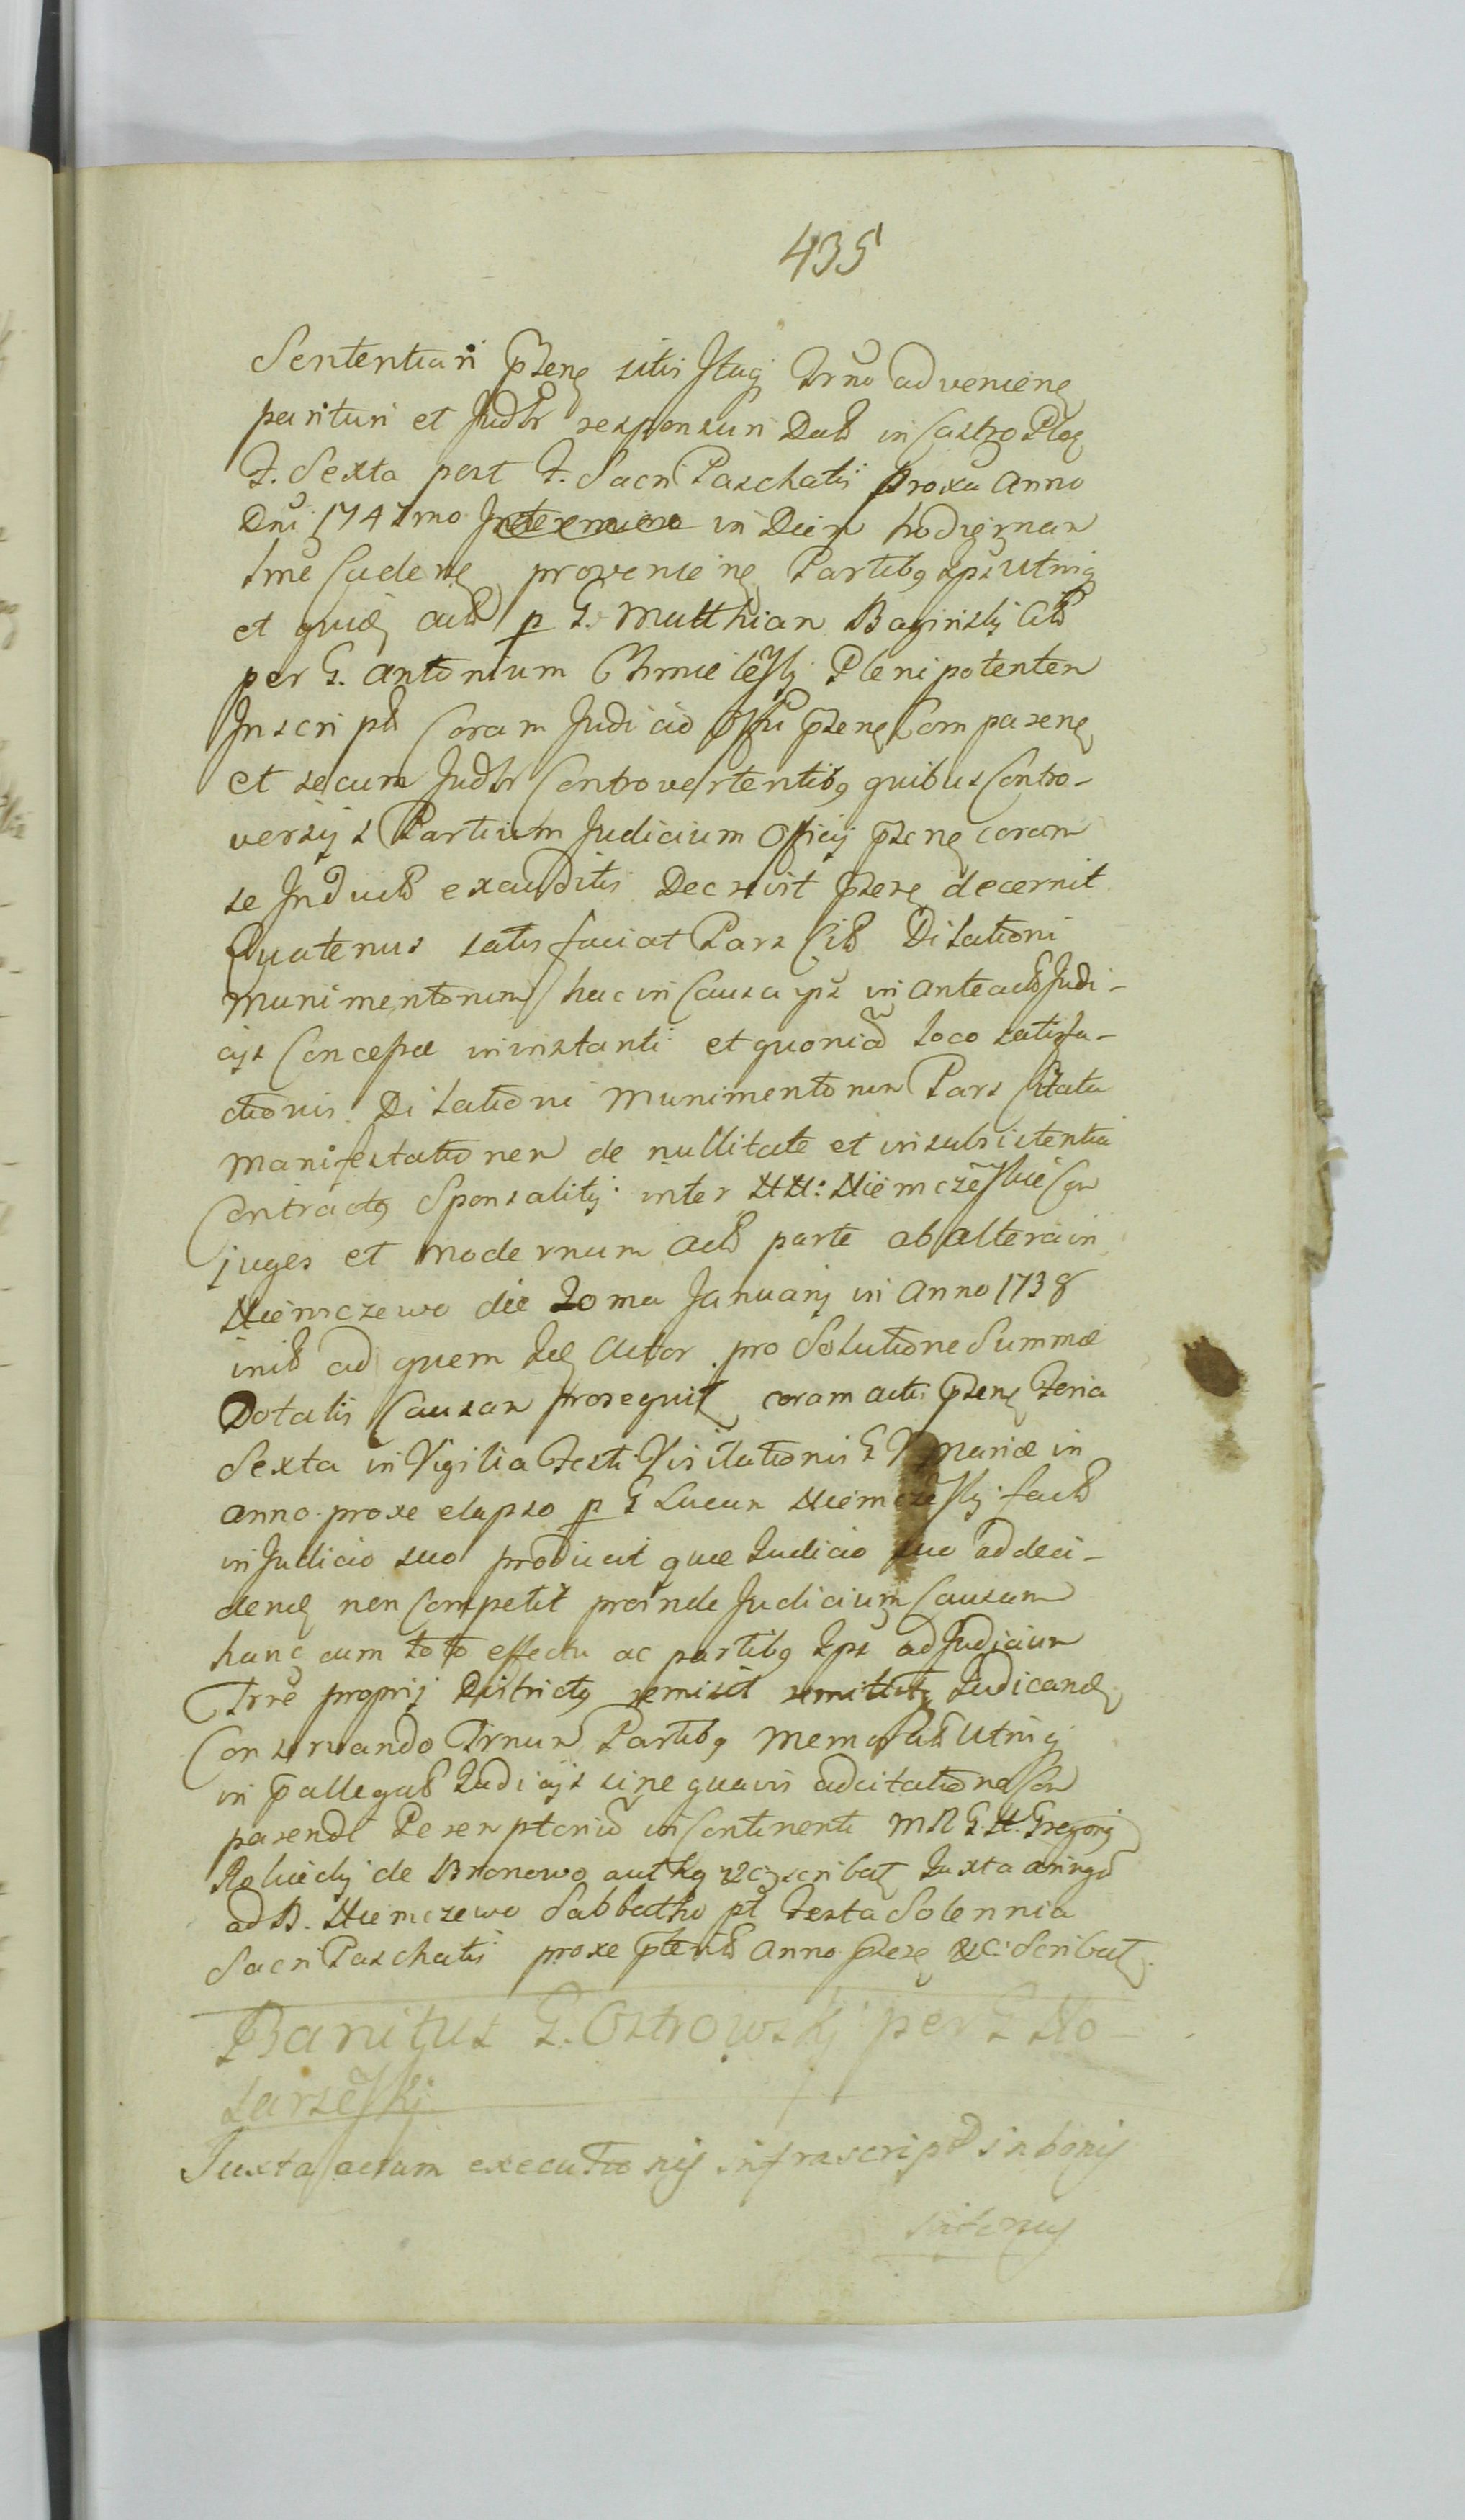 435
Sententiari pszens sitis Stuq Trno adveniens
parituri et Judr responsuri Dat in Castro Ploc
F. Sexta post F. Sacri Paschatis proxa Anno
Dni 1747mo in Diem hodiernam
Trne Cadens proveniens Partibq Ips Utriq
et quid act p G. Matthian Baginskj Cit
per G. Antonium Chmieleskj Plenipotenten
Inscript Coram Judicio Offi pszens Comparens
et secum Judr Controvertentibq quibus Contro-
versijs Partium Judicium Officij pszens coram
se Induct exauditis Decrevit pszens decernit
Quatenus satisfaciat Pars Cit Dilationi
Munimentorum hac in Causa ips in anteact Judi-
cijs Conceptae in instanti et quonia loco satisfa-
ctionis Dilationi Munimentorum Pars Citata
Manifestationem de nullitate et insubsistentia
Contractq Sponsalitij inter NN: Niemczeskie Con
juges et modernum Act parte ab altera in
Niemczewo die 20ma Januarij in Anno 1738
init ad quem Actor pro Solutione Summae
Dotalis Causam prosequit coram actis pszens Feria
Sexta in Vigilia Festi Visitationis B V Mariae in
Anno proxe elapso p G Lucam Niemczeskj fact
in Judicio suo producit quae Judicio suo ad deci-
dend non Competit proinde Judicium Causam
hanc cum toto effectu ac partibq Ips ad Judicium
Trre proprij Districtq remisit remittitq Judicand
Conservando Trnum Partibq Memorat Utriq
in pallegat Judicijs sine quavis adcitatione Com
parendi Peremptoriu in Continenti MN G. N. Gregorij
de Bronowo scribat Juxta
ad B. Niemczewo Sabbatho pt Festa Solennia
Sacri Paschatis proxe pterit Anno pszens &c: Scribat
Banitus G. Ostrowskj per G No-
sarzeskj
Juxta actum executionis infrascript in bonis